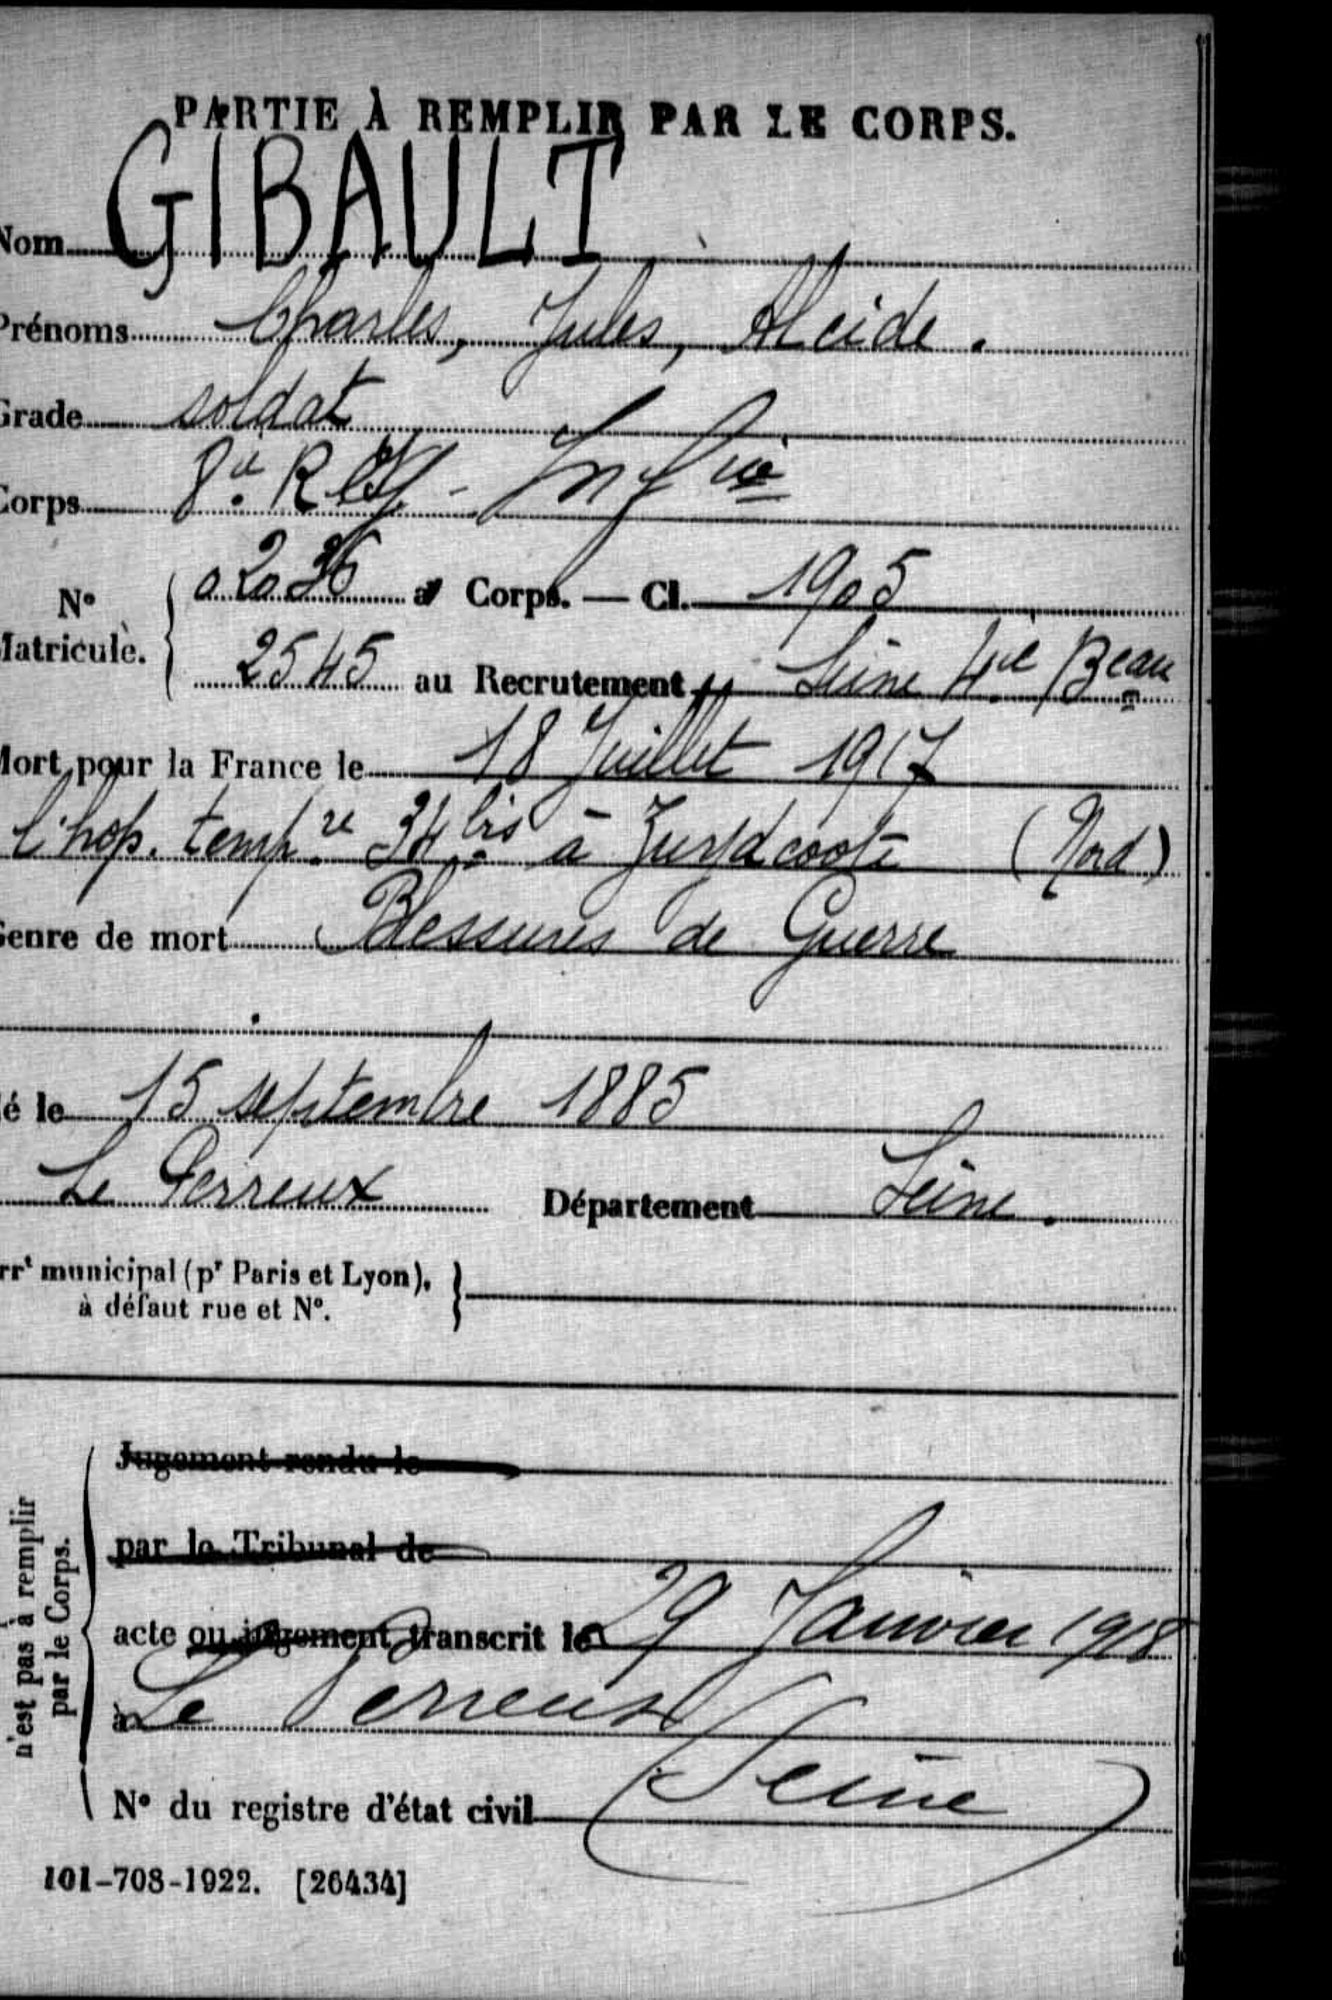 PARTIE À REMPLIR PAR LE CORPS.
Nom GIBAULT
Prénoms Charles, Jules, Alcide.
Grade soldat
Corps 8e. Rég - Infrie
No Matricule. { 02036 au Corps. — Cl. 1905
2545 au Recrutement Seine 4e Beau
Mort pour la France le 18 Juillet 1917
l'hop. tempre 34 bis à Zuydcoote (Nord)
Genre de mort Blessures de Guerre
é le 15 septembre 1885
Le Perreux Département Seine.
rrt municipal (pr Paris et Lyon), à défaut rue et No. }
n'est pas à remplir par le Corps.
Jugement rendu le
par le Tribunal de
acte ou jugement transcrit le 29 Janvier 1918
à Le Perreux
No du registre d'état civil (Seine)
101-708-1922. [26434]